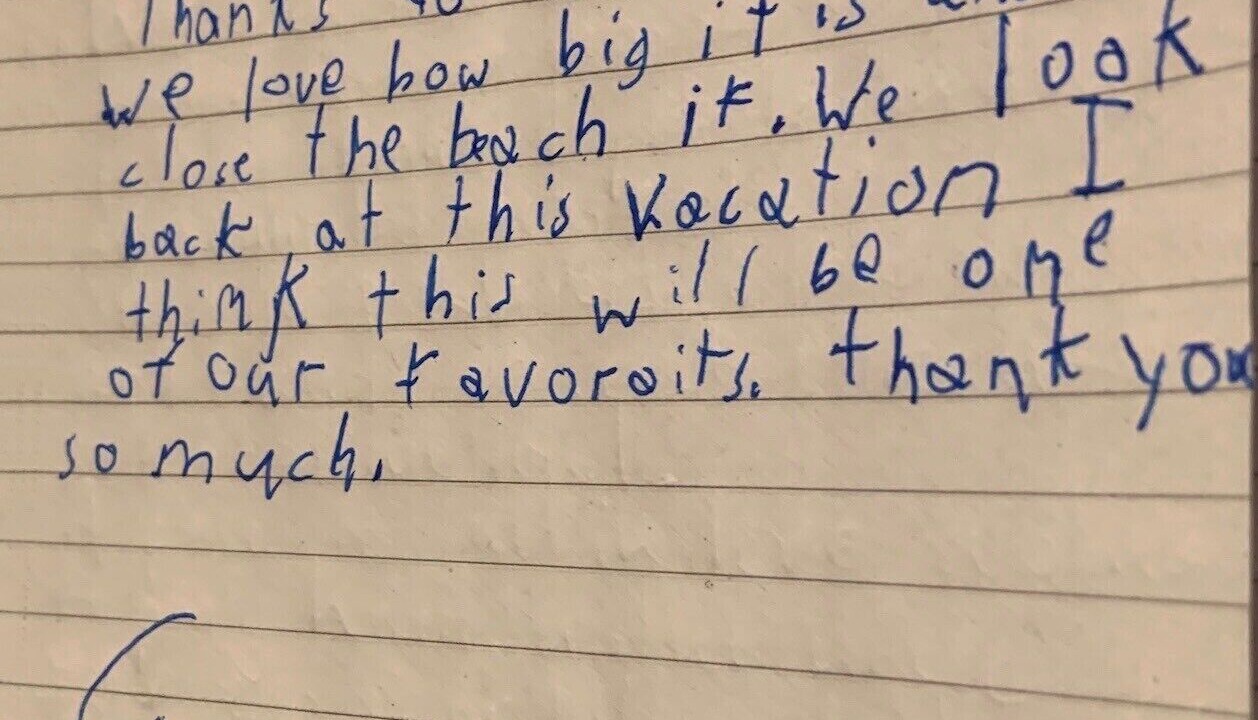 Thanks to
we love how big it is
close the beach it. We look
back at this vacation I
think this will be one
of our favoroits. thank you
so much.